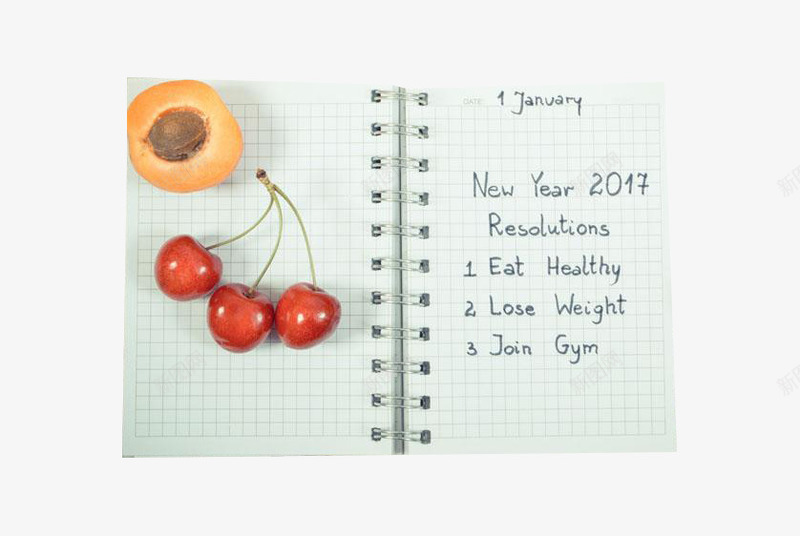 DATE: 1 January
New Year 2017
Resolutions
1 Eat Healthy
2 Lose Weight
3 Join Gym